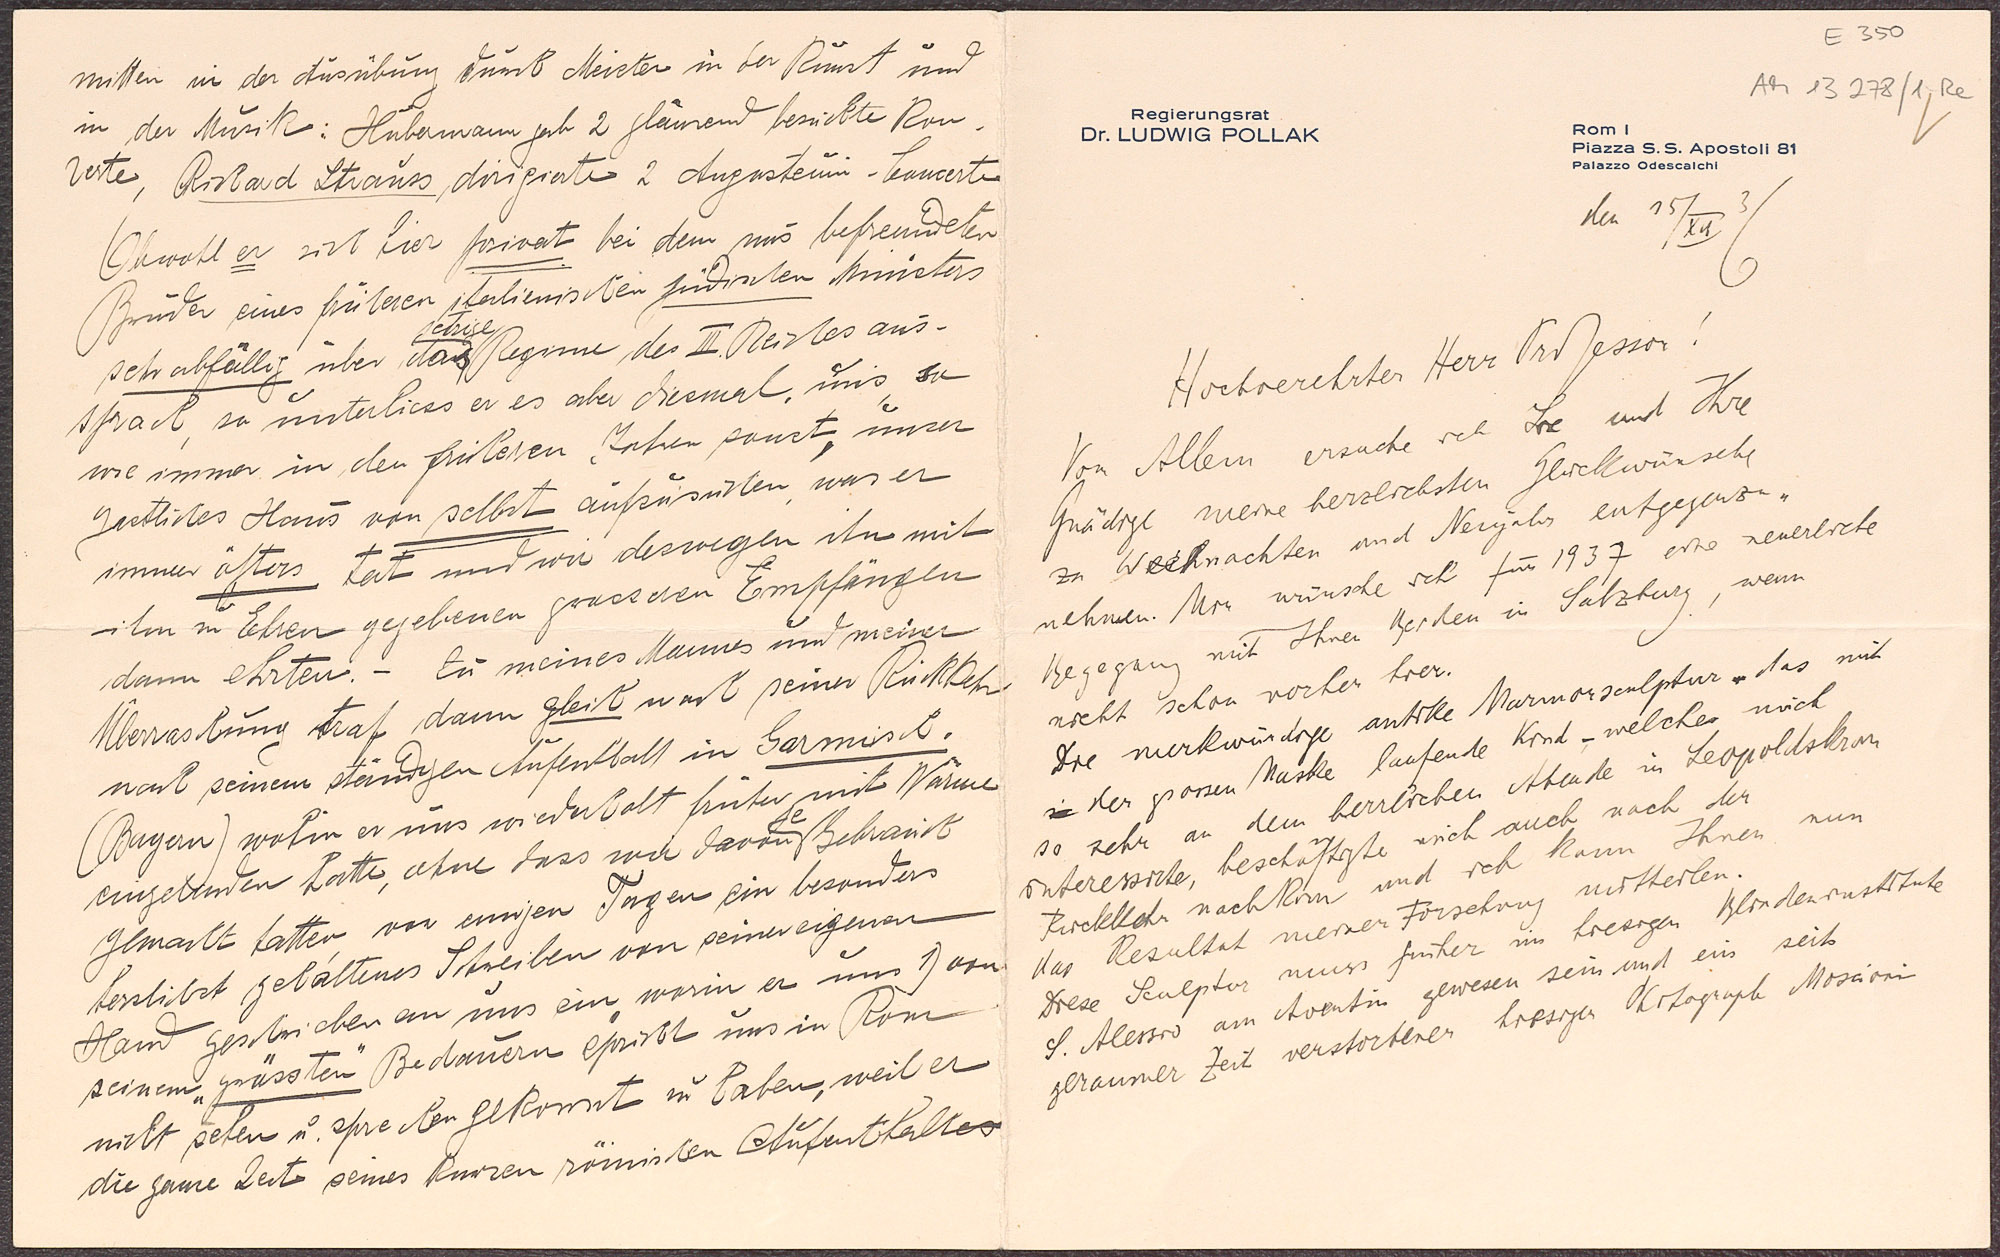 mitten in der Ausübung durch Meister in der Kunst und
in der Musik: Hubermann gab 2 glänzend besuchte Kon-
zerte, Richard Strauss, dirigierte 2 Augusteum-Concerte
(Obwohl er sich hier privat bei dem uns befreundeten
Bruder eines früheren italienischen jüdischen Ministers
sehr abfällig über das jetzige Regime des III. Reiches aus-
sprach, so unterliess er es aber diesmal, uns, so
wie immer in den früheren Jahren sonst, unser
gastliches Haus von selbst aufzusuchen, was er
immer öfters tat und wir deswegen ihn mit
ihm zu Ehren gegebenen grossen Empfängen
dann ehrten. - Zu meines Mannes und meiner
Überraschung traf dann gleich nach seiner Rückkehr
nach seinem ständigen Aufenthalt in Garmisch.
(Bayern) wohin er uns wiederholt früher mit Wärme
eingeladen hatte, ohne dass wir davon Gebrauch
gemacht hatten, vor einigen Tagen ein besonders
herzlichst gehaltenes Schreiben von seiner eigenen
Hand geschrieben an uns ein, worin er uns 1) von
seinem "grössten" Bedauern spricht uns in Rom
nicht sehen u. sprechen gekonnt zu haben, weil er
die ganze Zeit seines kurzen römischen Aufenthaltes
E 350
AM 13 278/1 Re
Regierungsrat
Dr. LUDWIG POLLAK
Rom I
Piazza S. S. Apostoli 81
Palazzo Odescalchi
den 15/XII 36
Hochverehrter Herr Professor!
Vor Allem ersuche ich Sie und Ihre
Gnädige meine herzlichsten Glückwünsche
zu Weihnachten und Neujahr entgegenzu"
nehmen. Mir wünsche ich für 1937 eine neuerliche
Begegnung mit Ihnen Beiden in Salzburg, wenn
nicht schon vorher hier.
Die merkwürdige antike Marmorsculptur - das mit
der grossen Maske laufende Kind - welches mich
so sehr an dem herrlichen Abende in Leopoldskron
interessirte, beschäftigte mich auch nach der
Rückkehr nach Rom und ich kann Ihnen nun
das Resultat meiner Forschung mittheilen.
Diese Sculptur muss früher im hiesigen Blindeninstitute
S. Alessio am Aventin gewesen sein und ein seit
geraumer Zeit verstorbener hiesiger Photograph Moscioni